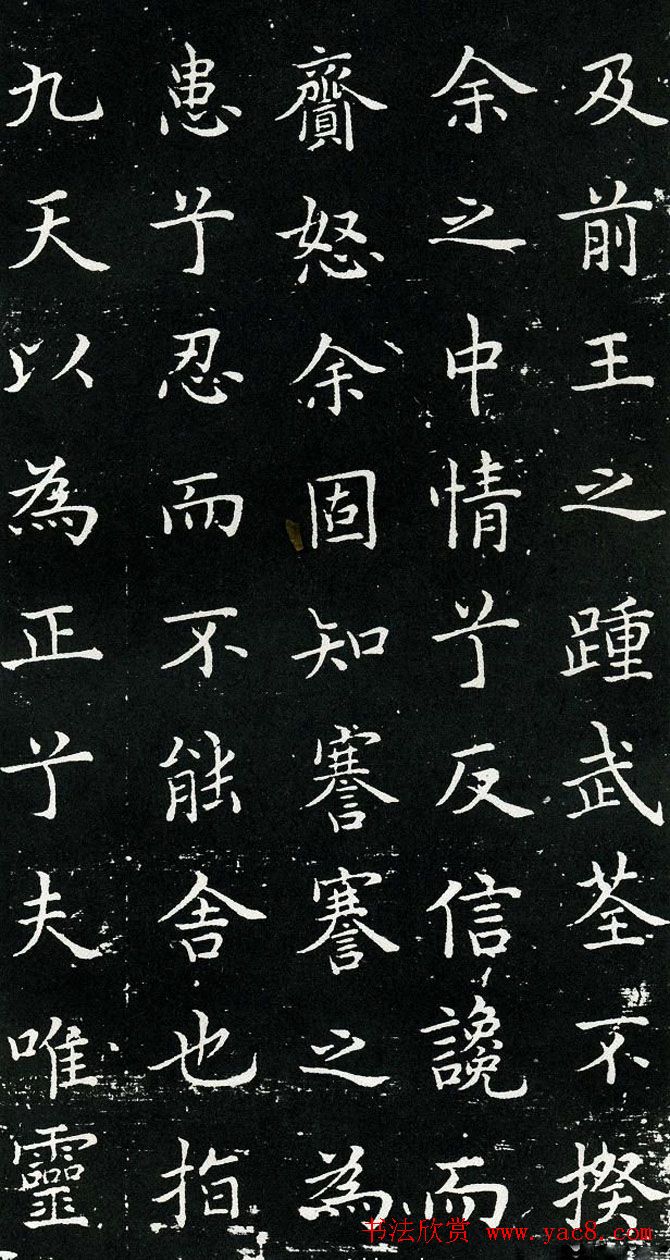 及前王之踵武荃不揆
余之中情兮反信讒而
齌怒余固知謇謇之為
患兮忍而不能舍也指
九天以為正兮夫唯靈
书法欣赏 www.yac8.com